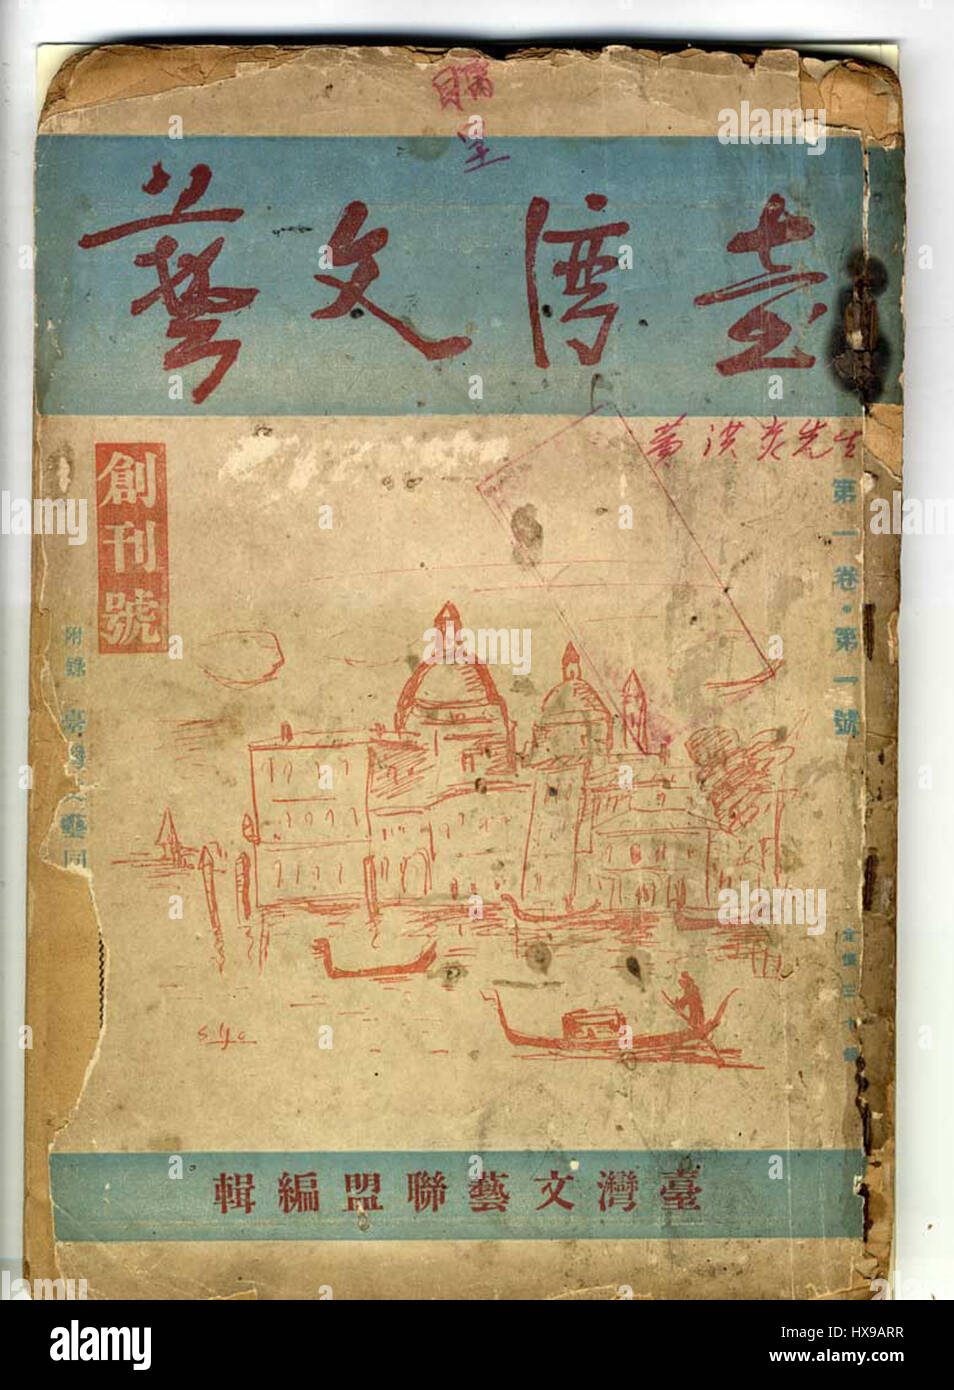 贈呈
臺灣文藝
黃洪炎先生
第一卷・第一號
定價三十錢
創刊號
附錄 臺灣文藝同
臺灣文藝聯盟編輯
alamy stock photo
alamy
HX9ARR
www.alamy.com